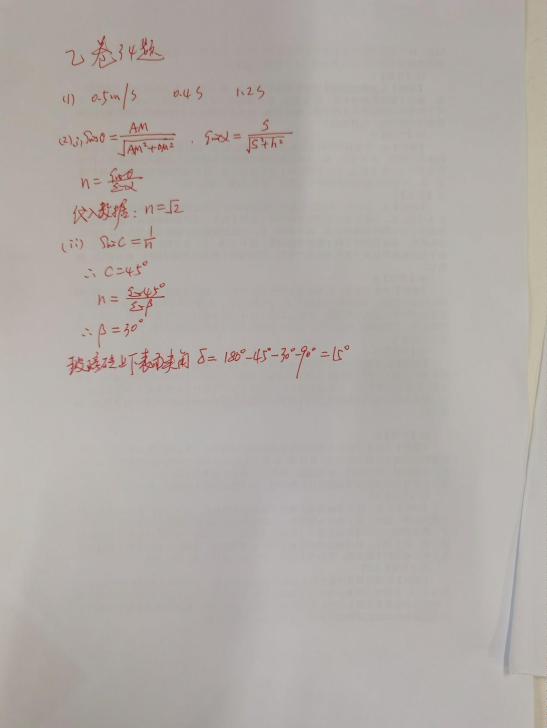 乙卷34题
(1) 0.5m/s 0.4s 1.2s
(2) i, sinθ = AM/√(AM²+OM²) , sinα = s/√(s²+h²)
n = sinθ/sinα
代入数据: n=√2
(ii) sinC = 1/n
∴ C=45°
n = sin45°/sinβ
∴ β=30°
玻璃砖上下表面夹角 δ= 180°-45°-30°-90°=15°